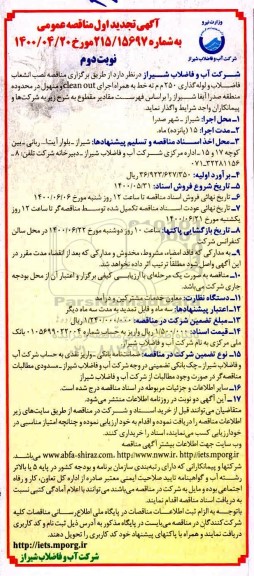 وزارت نیرو
شرکت آب و فاضلاب شیراز
آگهی تجدید اول مناقصه عمومی
به شماره ۲۱۵/۱۵۶۹۷ مورخ ۱۴۰۰/۰۴/۲۰
نوبت دوم
شرکت آب و فاضلاب شیراز در نظر دارد از طریق برگزاری مناقصه نصب انشعاب
فاضلاب و لوله گذاری ۲۵۰ م م ته خط به همراه اجرای clean out و منهول در محدوده
منطقه صدرا آبفا شیراز را براساس فهرست مقادیر مقطوع به شرح زیر به شرکت‌ها و
پیمانکاران واجد شرایط واگذار نماید.
۱- محل اجرا: شیراز - شهر صدرا
۲- مدت اجرا: ۱۵ (پانزده) ماه.
۳- محل اخذ اسناد مناقصه و تسلیم پیشنهادها: شیراز - بلوار آیت‌ا... ربانی - بین
کوچه ۱۷ و ۱۵ - اداره مرکزی شرکت آب و فاضلاب شیراز - دبیرخانه شرکت تلفن: ۸ -
۰۷۱-۳۲۲۸۱۱۵۶
۴- برآورد اولیه: ۲۶/۹۲۳/۶۲۷/۳۵۰ ریال
۵- تاریخ شروع فروش اسناد: ۱۴۰۰/۰۵/۳۱
۶- تاریخ نهائی فروش اسناد مناقصه تا ساعت ۱۲ روز شنبه مورخ ۱۴۰۰/۰۶/۰۶
۷- تاریخ نهائی عودت اسناد مناقصه تکمیل شده توسط مناقصه‌گر تا ساعت ۱۲ روز
یکشنبه مورخ ۱۴۰۰/۰۶/۲۱
۸- تاریخ بازگشایی پاکتها: ساعت ۱۰ روز دوشنبه مورخ ۱۴۰۰/۰۶/۲۲ در محل سالن
کنفرانس شرکت
۹- به مدارکی که فاقد امضاء، مشروط، مخدوش و مدارکی که بعد از انقضاء مدت مقرر در
این آگهی واصل شود مطلقاً ترتیب اثر داده نخواهد شد.
۱۰- مناقصه به صورت یک مرحله‌ای با ارزیابی کیفی برگزار و اعتبار آن از محل بودجه
جاری شرکت می‌باشد.
۱۱- دستگاه نظارت: معاون خدمات مشترکین و درآمد
۱۲- اعتبار پیشنهادها: سه ماه و قابل تمدید به مدت سه ماه دیگر
۱۳- مبلغ تضمین شرکت در مناقصه: ۱/۲۴۰/۰۰۰/۰۰۰ ریال
۱۴- قیمت اسناد: ۱/۵۰۰/۰۰۰ ریال واریز به حساب شماره ۰۱۰۵۶۹۹۰۲۲۰۰۲ بانک
ملی مرکزی به نام شرکت آب و فاضلاب شیراز
۱۵- نوع تضمین شرکت در مناقصه: ضمانتنامه بانکی - واریز نقدی به حساب شرکت آب
و فاضلاب شیراز - چک بانکی تضمینی در وجه شرکت آب و فاضلاب شیراز - مسدودی مطالبات
مناقصه‌گر در صورت وجود مطالبات از شرکت آب و فاضلاب شیراز
۱۶- سایر اطلاعات و جزئیات مربوطه در اسناد مناقصه درج شده است.
۱۷- این آگهی دو نوبت در روزنامه اطلاعات منتشر می‌شود.
متقاضیان می‌توانند قبل از خرید اسناد و شرکت در مناقصه از طریق سایت‌های زیر
اطلاعات مناقصه را دریافت نموده و اقدام به خود ارزیابی نموده و چنانچه امتیاز مناسبی در
خود ارزیابی کسب می‌نمایند، اسناد را خریداری کنند.
وب سایت جهت اطلاعات بیشتر آگهی مناقصه
www.abfa-shiraz.com, http://www.nww.ir, http://iets.mporg.ir می‌باشد
شرکت‌ها و پیمانکارانی که دارای رتبه‌بندی سازمان برنامه و بودجه کشور در پایه ۵ یا بالاتر
رشته آب و گواهینامه تایید صلاحیت ایمنی معتبر صادره از اداره کل تعاون، کار و رفاه
اجتماعی بوده و مایل به شرکت در مناقصه می‌باشند می‌توانند با اعلام آمادگی کتبی نسبت
به دریافت اسناد مناقصه اقدام نمایند.
باتوجه به الزام ثبت اطلاعات مناقصات در پایگاه ملی اطلاع‌رسانی مناقصات کلیه
شرکت کنندگان در مناقصه می‌بایست در پایگاه مذکور به آدرس ذیل ثبت نام و کد کاربری
دریافت نمایند و همراه با پاکتهای پیشنهاد خود کد کاربری را تحویل دهند.
http://iets.mporg.ir
شرکت آب و فاضلاب شیراز